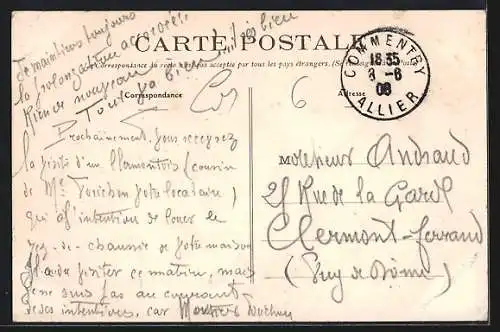 Je maintiens toujours
la prolongation accordée
Rien de nouveau
Tout va bien
CARTE POSTALE
La correspondance au recto n'est pas acceptée par tous les pays étrangers. (Se
Correspondance
Adresse
COMMENTRY
18 35
8 - 6
08
ALLIER
6
Prochainement, vous recevrez
la visite d'un Clermontois (cousin
de Mr votre locataire)
qui a l'intention de louer le
rez-de-chaussée de votre maison
Il a dû visiter ce matin, mais
je ne suis pas au courant
de ses intentions, car
Monsieur Andraud
21 Rue de la Gare
Clermont-Ferrand
(Puy de Dôme)